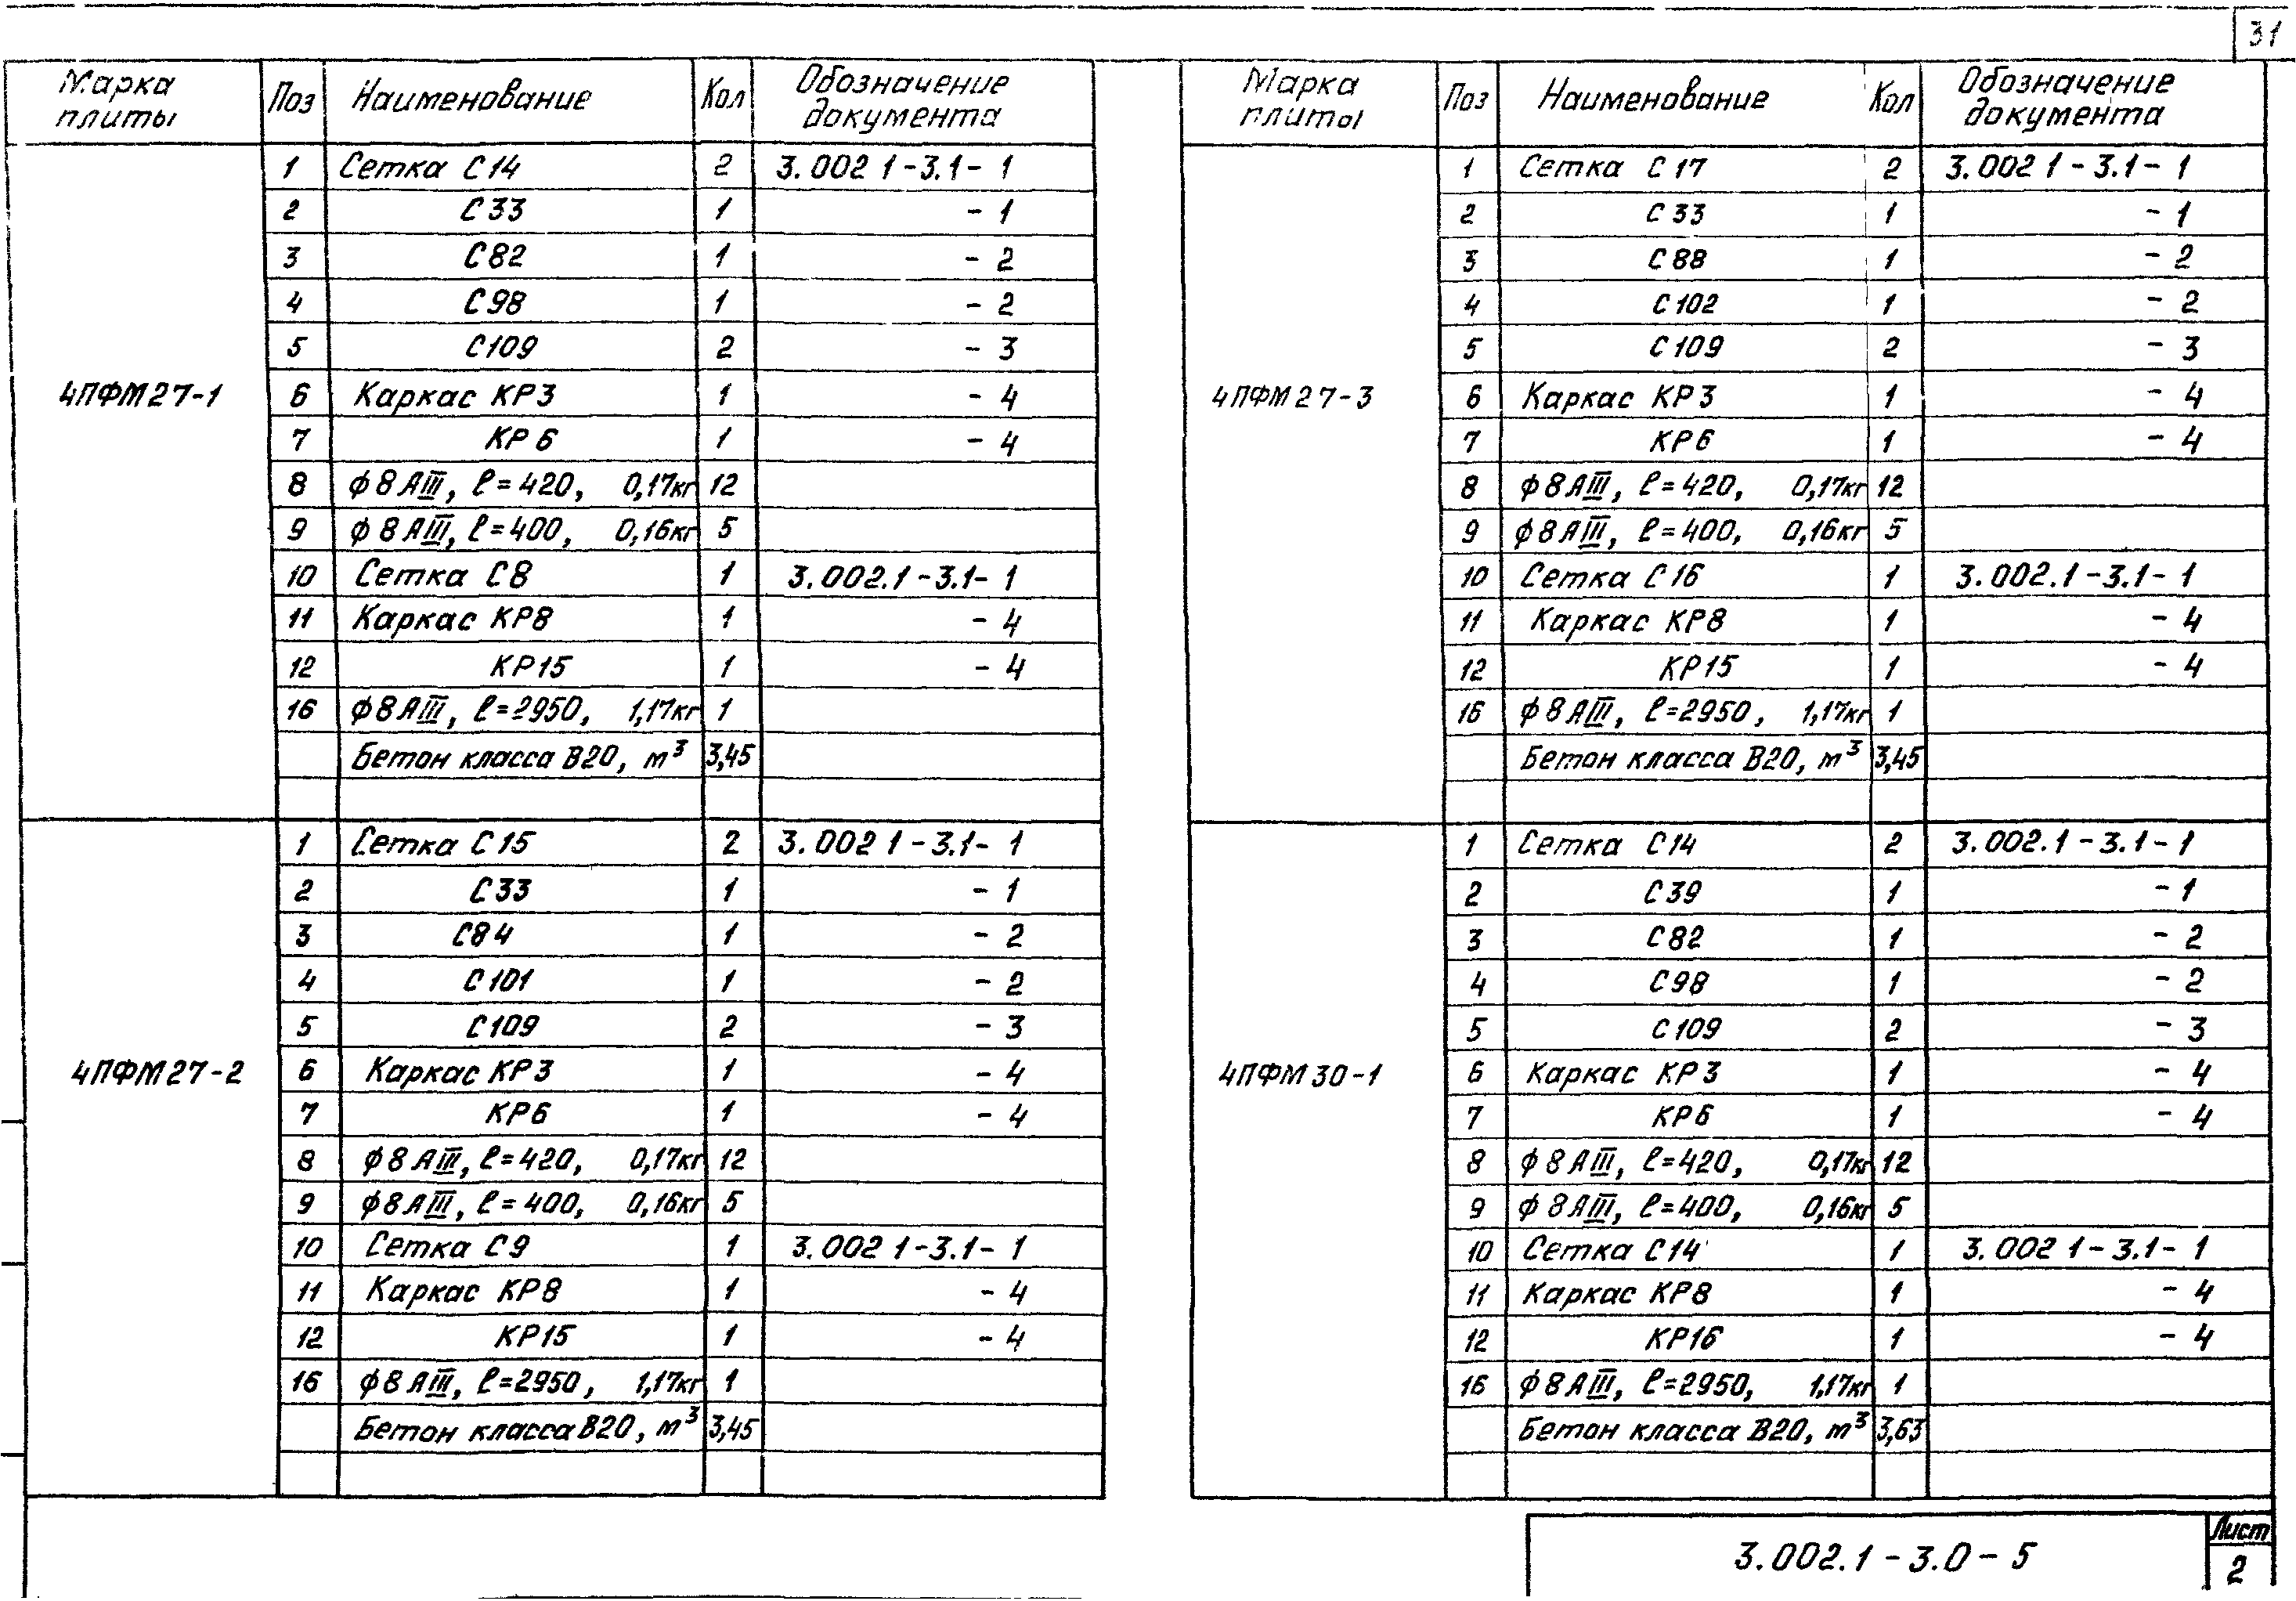 31
Марка плиты Поз Наименование Кол Обозначение документа
4ПФМ27-1
1 Сетка С14 2 3.002 1-3.1- 1
2 С33 1 - 1
3 С82 1 - 2
4 С98 1 - 2
5 С109 2 - 3
6 Каркас КР3 1 - 4
7 КР6 1 - 4
8 ф8АIII, ℓ=420, 0,17кг 12
9 ф8АIII, ℓ=400, 0,16кг 5
10 Сетка С8 1 3.002.1-3.1- 1
11 Каркас КР8 1 - 4
12 КР15 1 - 4
16 ф8АIII, ℓ=2950, 1,17кг 1
Бетон класса В20, м³ 3,45
4ПФМ27-2
1 Сетка С15 2 3.002 1-3.1- 1
2 С33 1 - 1
3 С84 1 - 2
4 С101 1 - 2
5 С109 2 - 3
6 Каркас КР3 1 - 4
7 КР6 1 - 4
8 ф8АIII, ℓ=420, 0,17кг 12
9 ф8АIII, ℓ=400, 0,16кг 5
10 Сетка С9 1 3.002 1-3.1- 1
11 Каркас КР8 1 - 4
12 КР15 1 - 4
16 ф8АIII, ℓ=2950, 1,17кг 1
Бетон класса В20, м³ 3,45
Марка плиты Поз Наименование Кол Обозначение документа
4ПФМ27-3
1 Сетка С17 2 3.002 1-3.1- 1
2 С33 1 - 1
3 С88 1 - 2
4 С102 1 - 2
5 С109 2 - 3
6 Каркас КР3 1 - 4
7 КР6 1 - 4
8 ф8АIII, ℓ=420, 0,17кг 12
9 ф8АIII, ℓ=400, 0,16кг 5
10 Сетка С16 1 3.002.1-3.1- 1
11 Каркас КР8 1 - 4
12 КР15 1 - 4
16 ф8АIII, ℓ=2950, 1,17кг 1
Бетон класса В20, м³ 3,45
4ПФМ30-1
1 Сетка С14 2 3.002.1-3.1-1
2 С39 1 - 1
3 С82 1 - 2
4 С98 1 - 2
5 С109 2 - 3
6 Каркас КР3 1 - 4
7 КР6 1 - 4
8 ф8АIII, ℓ=420, 0,17кг 12
9 ф8АIII, ℓ=400, 0,16кг 5
10 Сетка С14 1 3.002 1-3.1- 1
11 Каркас КР8 1 - 4
12 КР16 1 - 4
16 ф8АIII, ℓ=2950, 1,17кг 1
Бетон класса В20, м³ 3,63
3.002.1-3.0-5
Лист
2